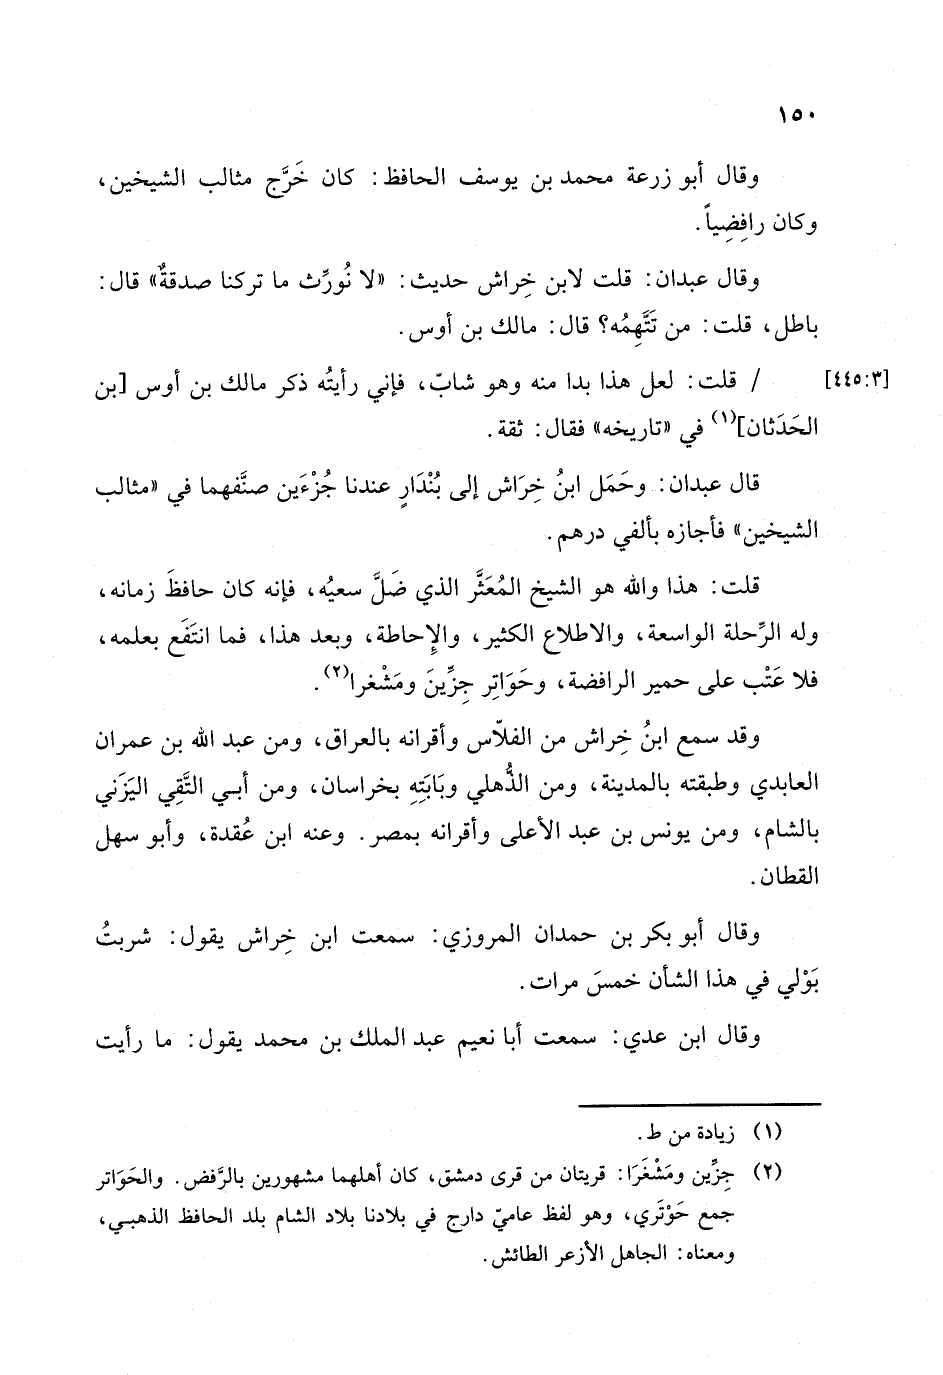 ١٥٠
وقال أبو زرعة محمد بن يوسف الحافظ: كان خَرَّج مثالب الشيخين،
وكان رافِضِياً.
وقال عبدان: قلت لابن خِراش حديث: «لا نُورِّث ما تركنا صدقةٌ» قال:
باطل، قلت: من تَتَّهِمُه؟ قال: مالك بن أوس.
[٤٤٥:٣] / قلت: لعل هذا بدا منه وهو شابّ، فإني رأيتُه ذكر مالك بن أوس [بن
الحَدَثان](١) في «تاريخه» فقال: ثقة.
قال عبدان: وحَمَل ابنُ خِرَاش إلى بُنْدَارٍ عندنا جُزْءَين صنَّفهما في «مثالب
الشيخين» فأجازه بألفي درهم.
قلت: هذا والله هو الشيخ المُعَثَّر الذي ضَلَّ سعيُه، فإنه كان حافظَ زمانه،
وله الرِّحلة الواسعة، والاطلاع الكثير، والإِحاطة، وبعد هذا، فما انتَفَع بعلمه،
فلا عَتْب على حمير الرافضة، وحَوَاتِر جِزِّينَ ومَشْغرا(٢).
وقد سمع ابنُ خِراش من الفلاّس وأقرانه بالعراق، ومن عبد الله بن عمران
العابدي وطبقته بالمدينة، ومن الذُّهلي وبَابَتِهِ بخراسان، ومن أبي التَّقِي اليَزَني
بالشام، ومن يونس بن عبد الأعلى وأقرانه بمصر. وعنه ابن عُقدة، وأبو سهل
القطان.
وقال أبو بكر بن حمدان المروزي: سمعت ابن خِراش يقول: شربتُ
بَوْلي في هذا الشأن خمسَ مرات.
وقال ابن عدي: سمعت أبا نعيم عبد الملك بن محمد يقول: ما رأيت
(١) زيادة من ط.
(٢) جِزِّين ومَشْغَرَا: قريتان من قرى دمشق، كان أهلهما مشهورين بالرَّفض. والحَوَاتر
جمع حَوْتَري، وهو لفظ عاميّ دارج في بلادنا بلاد الشام بلد الحافظ الذهبي،
ومعناه: الجاهل الأزعر الطائش.